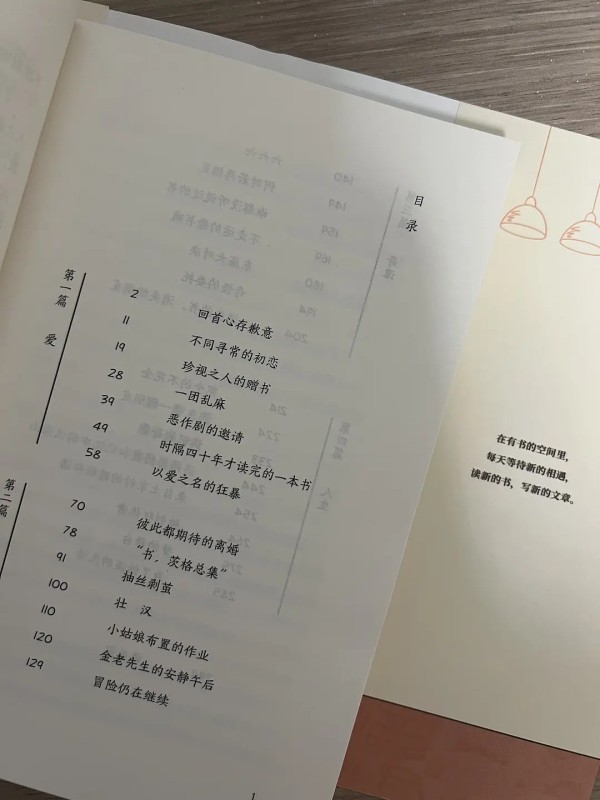 目录
第一篇 爱
2 回首心存歉意
11 不同寻常的初恋
19 珍视之人的赠书
28 一团乱麻
39 恶作剧的邀请
49 时隔四十年才读完的一本书
58 以爱之名的狂暴
第二篇
70 彼此都期待的离婚
78 “书，茨格总集”
91 抽丝剥茧
100 壮汉
110 小姑娘布置的作业
120 金老先生的安静午后
129 冒险仍在继续
1
在有书的空间里，
每天等待新的相遇，
读新的书，写新的文章。